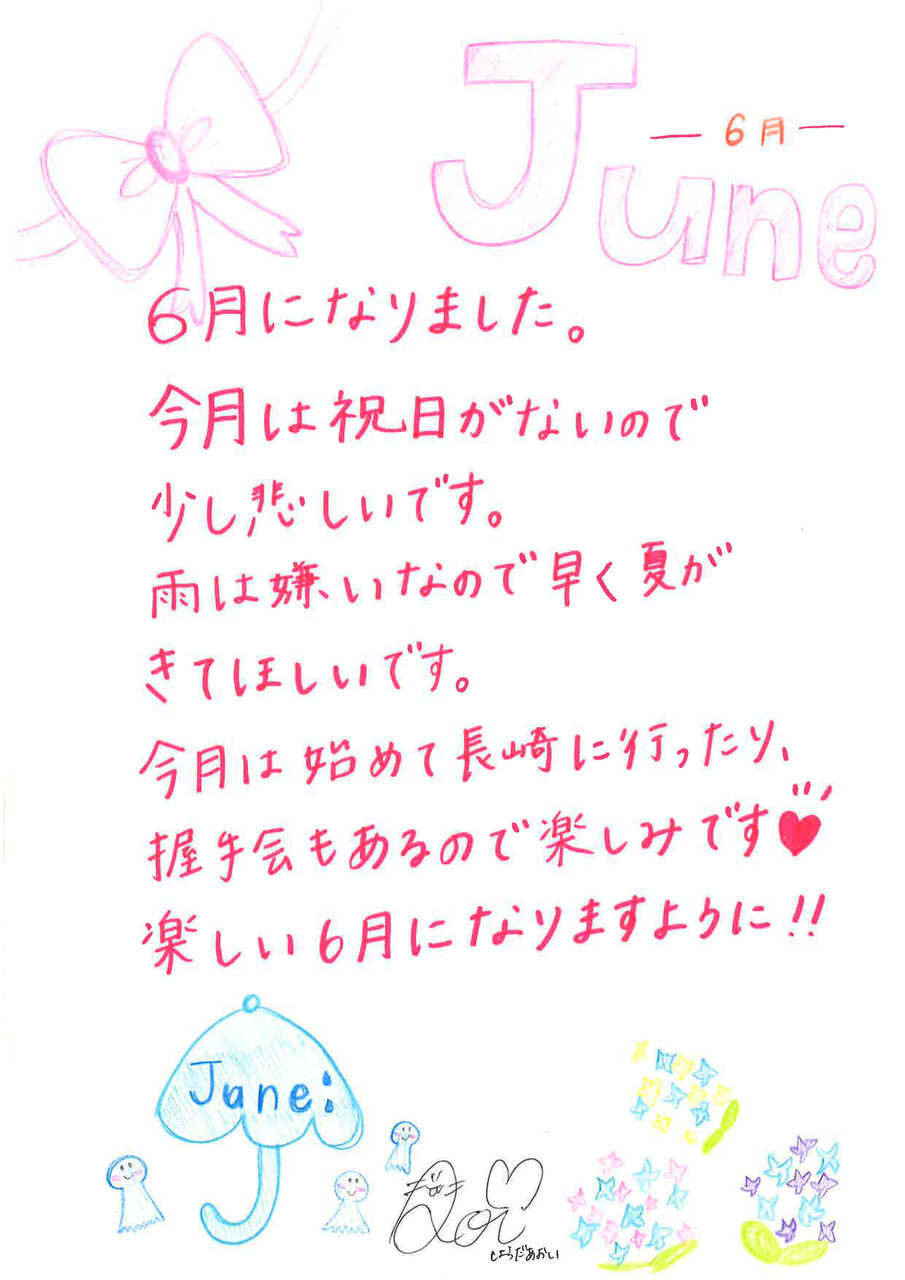 June
6月
6月になりました。
今月は祝日がないので
少し悲しいです。
雨は嫌いなので早く夏が
きてほしいです。
今月は始めて長崎に行ったり、
握手会もあるので楽しみです
楽しい6月になりますように!!
June
しょうだあおい